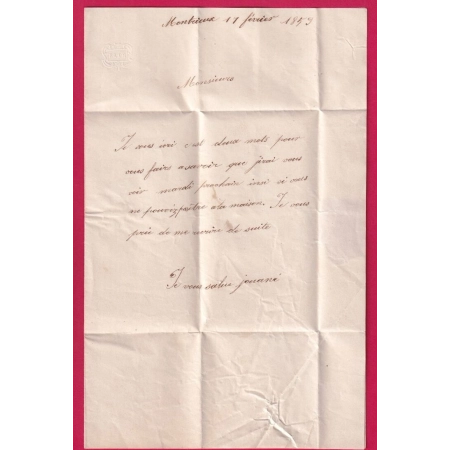 Montrieux 17 février 1853
Monsieur
Je vous ecri c'est deux mots pour
vous faire asavoir que j'irai vous
voir mardi prochain insi si vous
ne pouviz paêtre a la maison. Je vous
prie de me ecrire de suite
Je vous salue